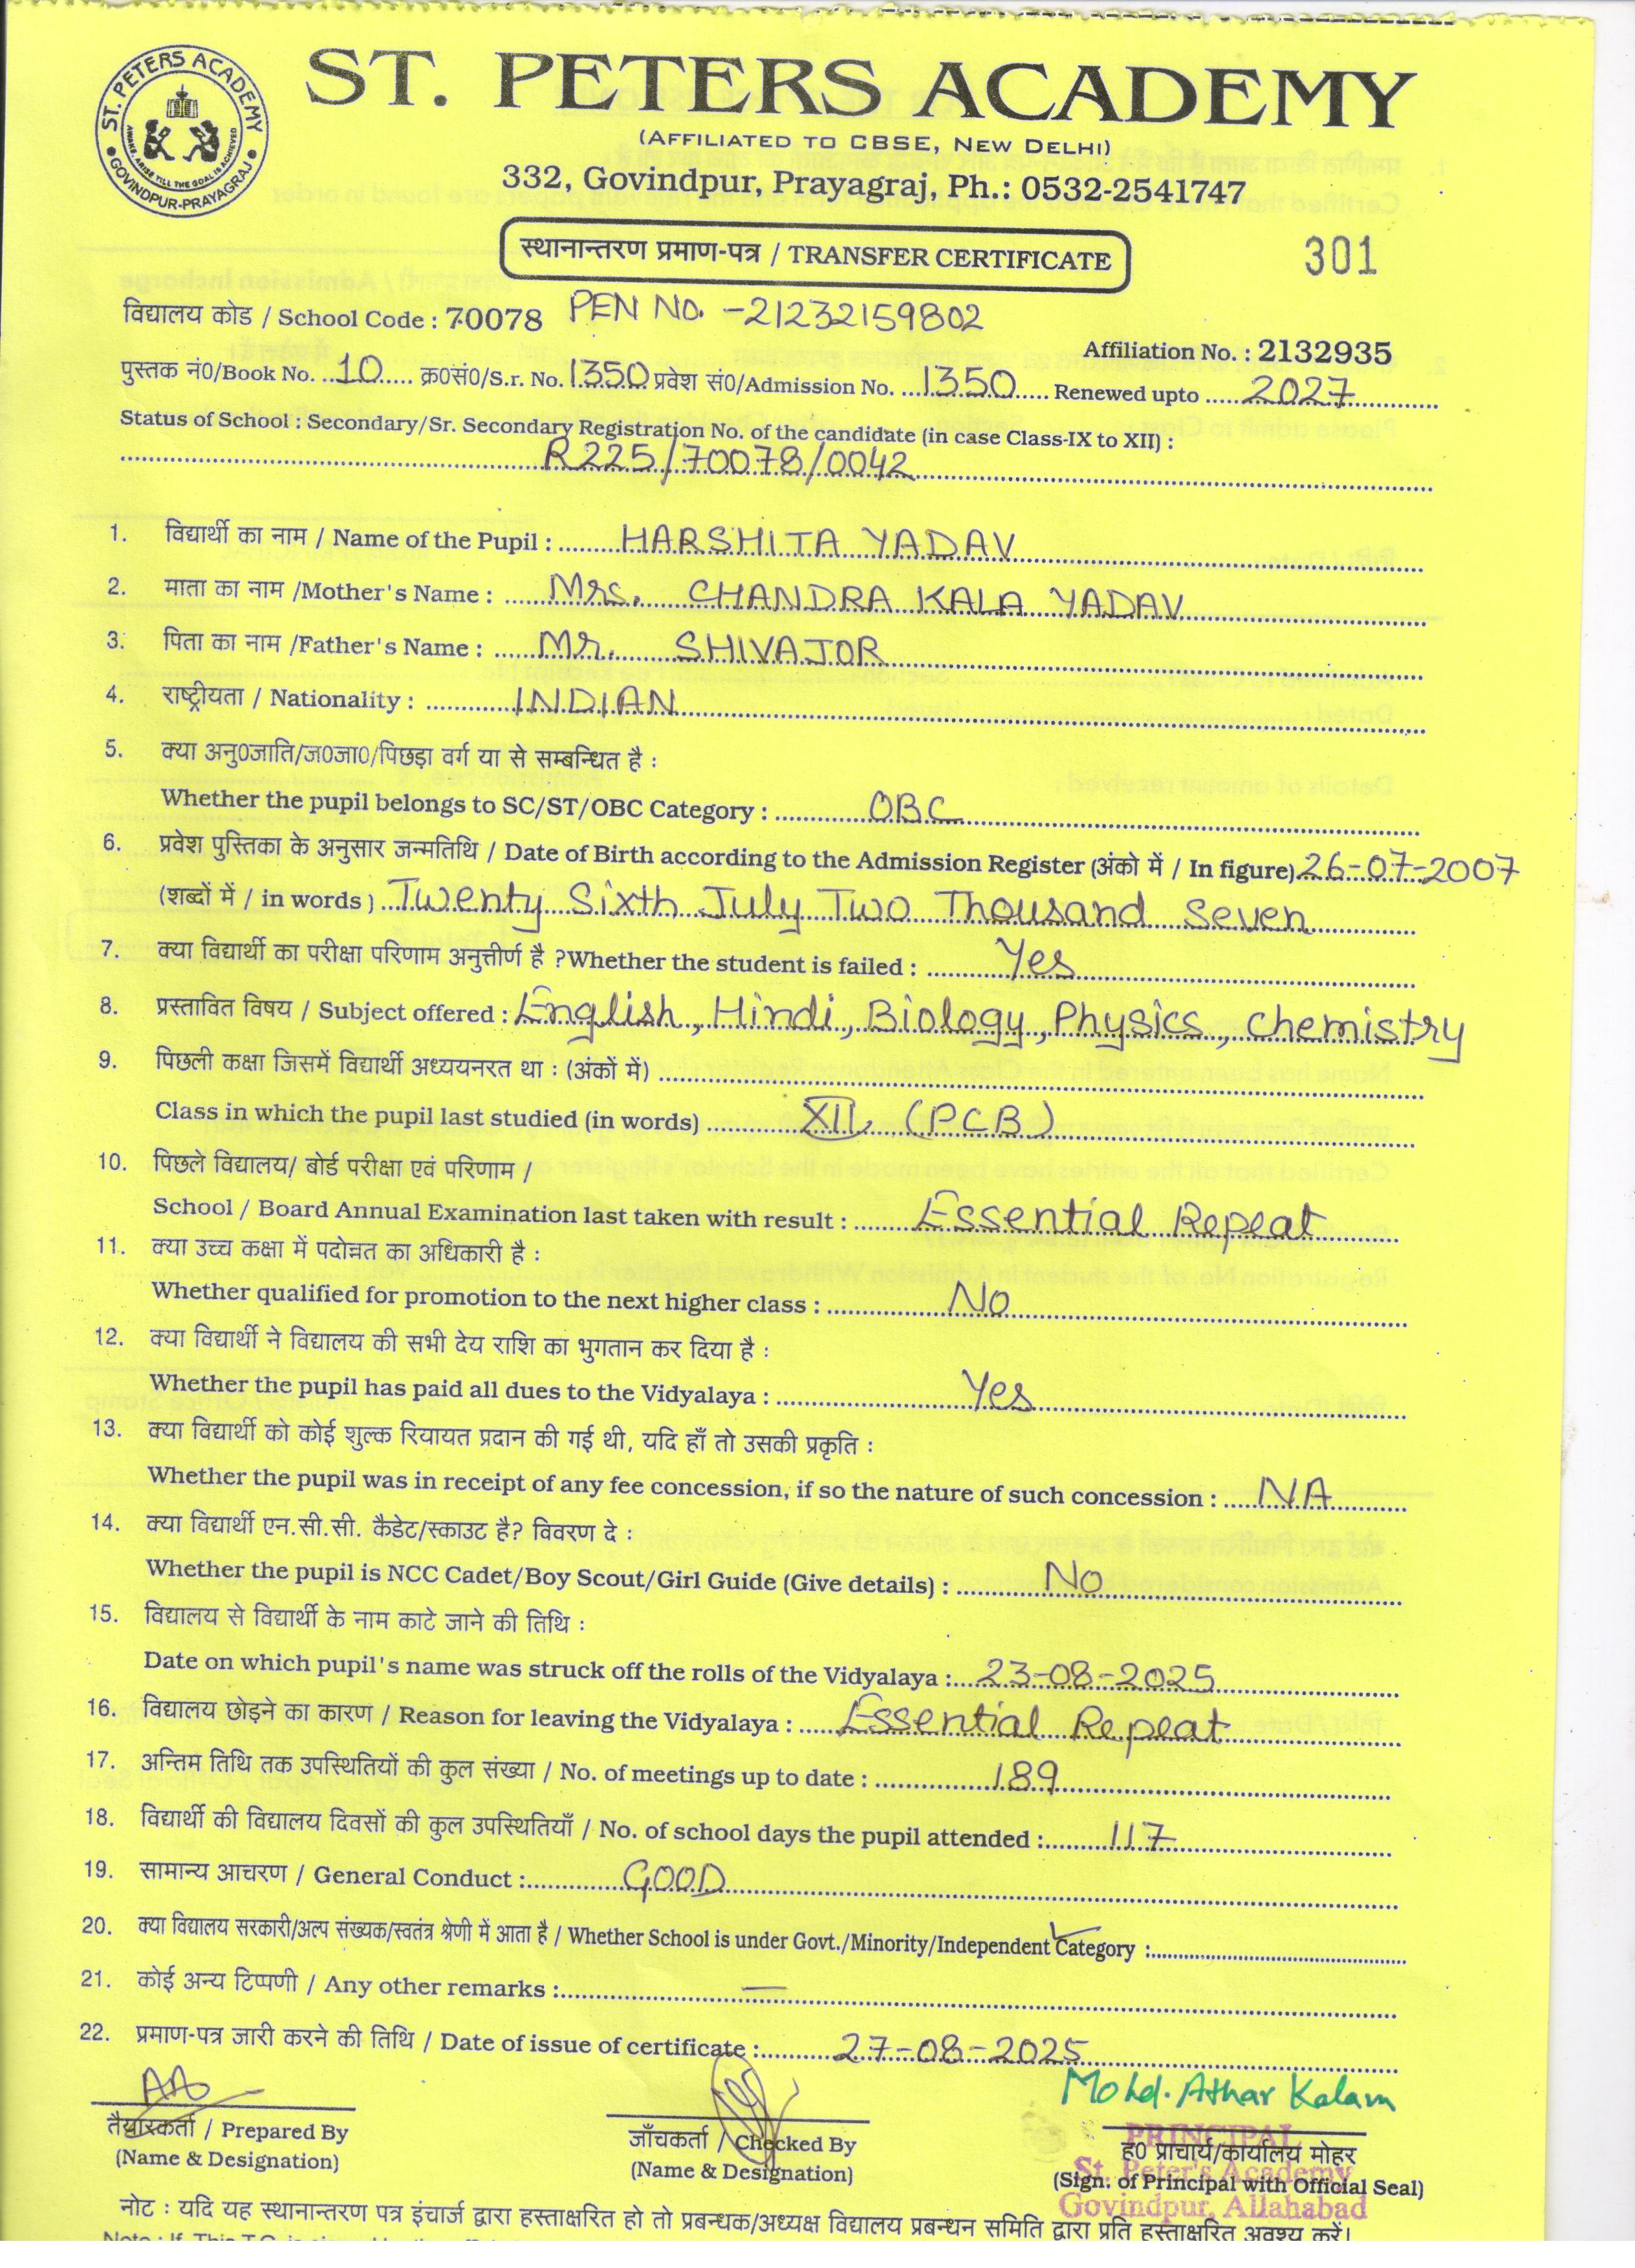 ST. PETERS ACADEMY
GOVINDPUR-PRAYAGRAJ
AWAKE, ARISE TILL THE GOAL IS ACHIEVED
ST. PETERS ACADEMY
(AFFILIATED TO CBSE, NEW DELHI)
332, Govindpur, Prayagraj, Ph.: 0532-2541747
स्थानान्तरण प्रमाण-पत्र / TRANSFER CERTIFICATE
301
विद्यालय कोड / School Code : 70078 PEN NO. -21232159802
Affiliation No. : 2132935
पुस्तक नं0/Book No. ..10..... क्र0सं0/S.r. No. 1350 प्रवेश सं0/Admission No. ...1350..... Renewed upto .....2027
Status of School : Secondary/Sr. Secondary Registration No. of the candidate (in case Class-IX to XII) :
R225/70078/0042
1. विद्यार्थी का नाम / Name of the Pupil : HARSHITA YADAV
2. माता का नाम /Mother's Name : Mrs. CHANDRA KALA YADAV
3. पिता का नाम /Father's Name : Mr. SHIVAJOR
4. राष्ट्रीयता / Nationality : INDIAN
5. क्या अनु0जाति/ज0जा0/पिछड़ा वर्ग या से सम्बन्धित है :
Whether the pupil belongs to SC/ST/OBC Category : OBC
6. प्रवेश पुस्तिका के अनुसार जन्मतिथि / Date of Birth according to the Admission Register (अंको में / In figure) 26-07-2007
(शब्दों में / in words ) Twenty Sixth July Two Thousand Seven
7. क्या विद्यार्थी का परीक्षा परिणाम अनुत्तीर्ण है ?Whether the student is failed : Yes
8. प्रस्तावित विषय / Subject offered : English, Hindi, Biology, Physics, Chemistry
9. पिछली कक्षा जिसमें विद्यार्थी अध्ययनरत था : (अंकों में)
Class in which the pupil last studied (in words) XII (PCB)
10. पिछले विद्यालय/ बोर्ड परीक्षा एवं परिणाम /
School / Board Annual Examination last taken with result : Essential Repeat
11. क्या उच्च कक्षा में पदोन्नत का अधिकारी है :
Whether qualified for promotion to the next higher class : No
12. क्या विद्यार्थी ने विद्यालय की सभी देय राशि का भुगतान कर दिया है :
Whether the pupil has paid all dues to the Vidyalaya : Yes
13. क्या विद्यार्थी को कोई शुल्क रियायत प्रदान की गई थी, यदि हाँ तो उसकी प्रकृति :
Whether the pupil was in receipt of any fee concession, if so the nature of such concession : NA
14. क्या विद्यार्थी एन.सी.सी. कैडेट/स्काउट है? विवरण दे :
Whether the pupil is NCC Cadet/Boy Scout/Girl Guide (Give details) : No
15. विद्यालय से विद्यार्थी के नाम काटे जाने की तिथि :
Date on which pupil's name was struck off the rolls of the Vidyalaya : 23-08-2025
16. विद्यालय छोड़ने का कारण / Reason for leaving the Vidyalaya : Essential Repeat
17. अन्तिम तिथि तक उपस्थितियों की कुल संख्या / No. of meetings up to date : 189
18. विद्यार्थी की विद्यालय दिवसों की कुल उपस्थितियाँ / No. of school days the pupil attended : 117
19. सामान्य आचरण / General Conduct : GOOD
20. क्या विद्यालय सरकारी/अल्प संख्यक/स्वतंत्र श्रेणी में आता है / Whether School is under Govt./Minority/Independent Category :
21. कोई अन्य टिप्पणी / Any other remarks : —
22. प्रमाण-पत्र जारी करने की तिथि / Date of issue of certificate : 27-08-2025
Mohd. Athar Kalam
तैयारकर्ता / Prepared By
(Name & Designation)
जाँचकर्ता / Checked By
(Name & Designation)
PRINCIPAL
ह0 प्राचार्य/कार्यालय मोहर
St. Peter's Academy
(Sign. of Principal with Official Seal)
Govindpur, Allahabad
नोट : यदि यह स्थानान्तरण पत्र इंचार्ज द्वारा हस्ताक्षरित हो तो प्रबन्धक/अध्यक्ष विद्यालय प्रबन्धन समिति द्वारा प्रति हस्ताक्षरित अवश्य करें।